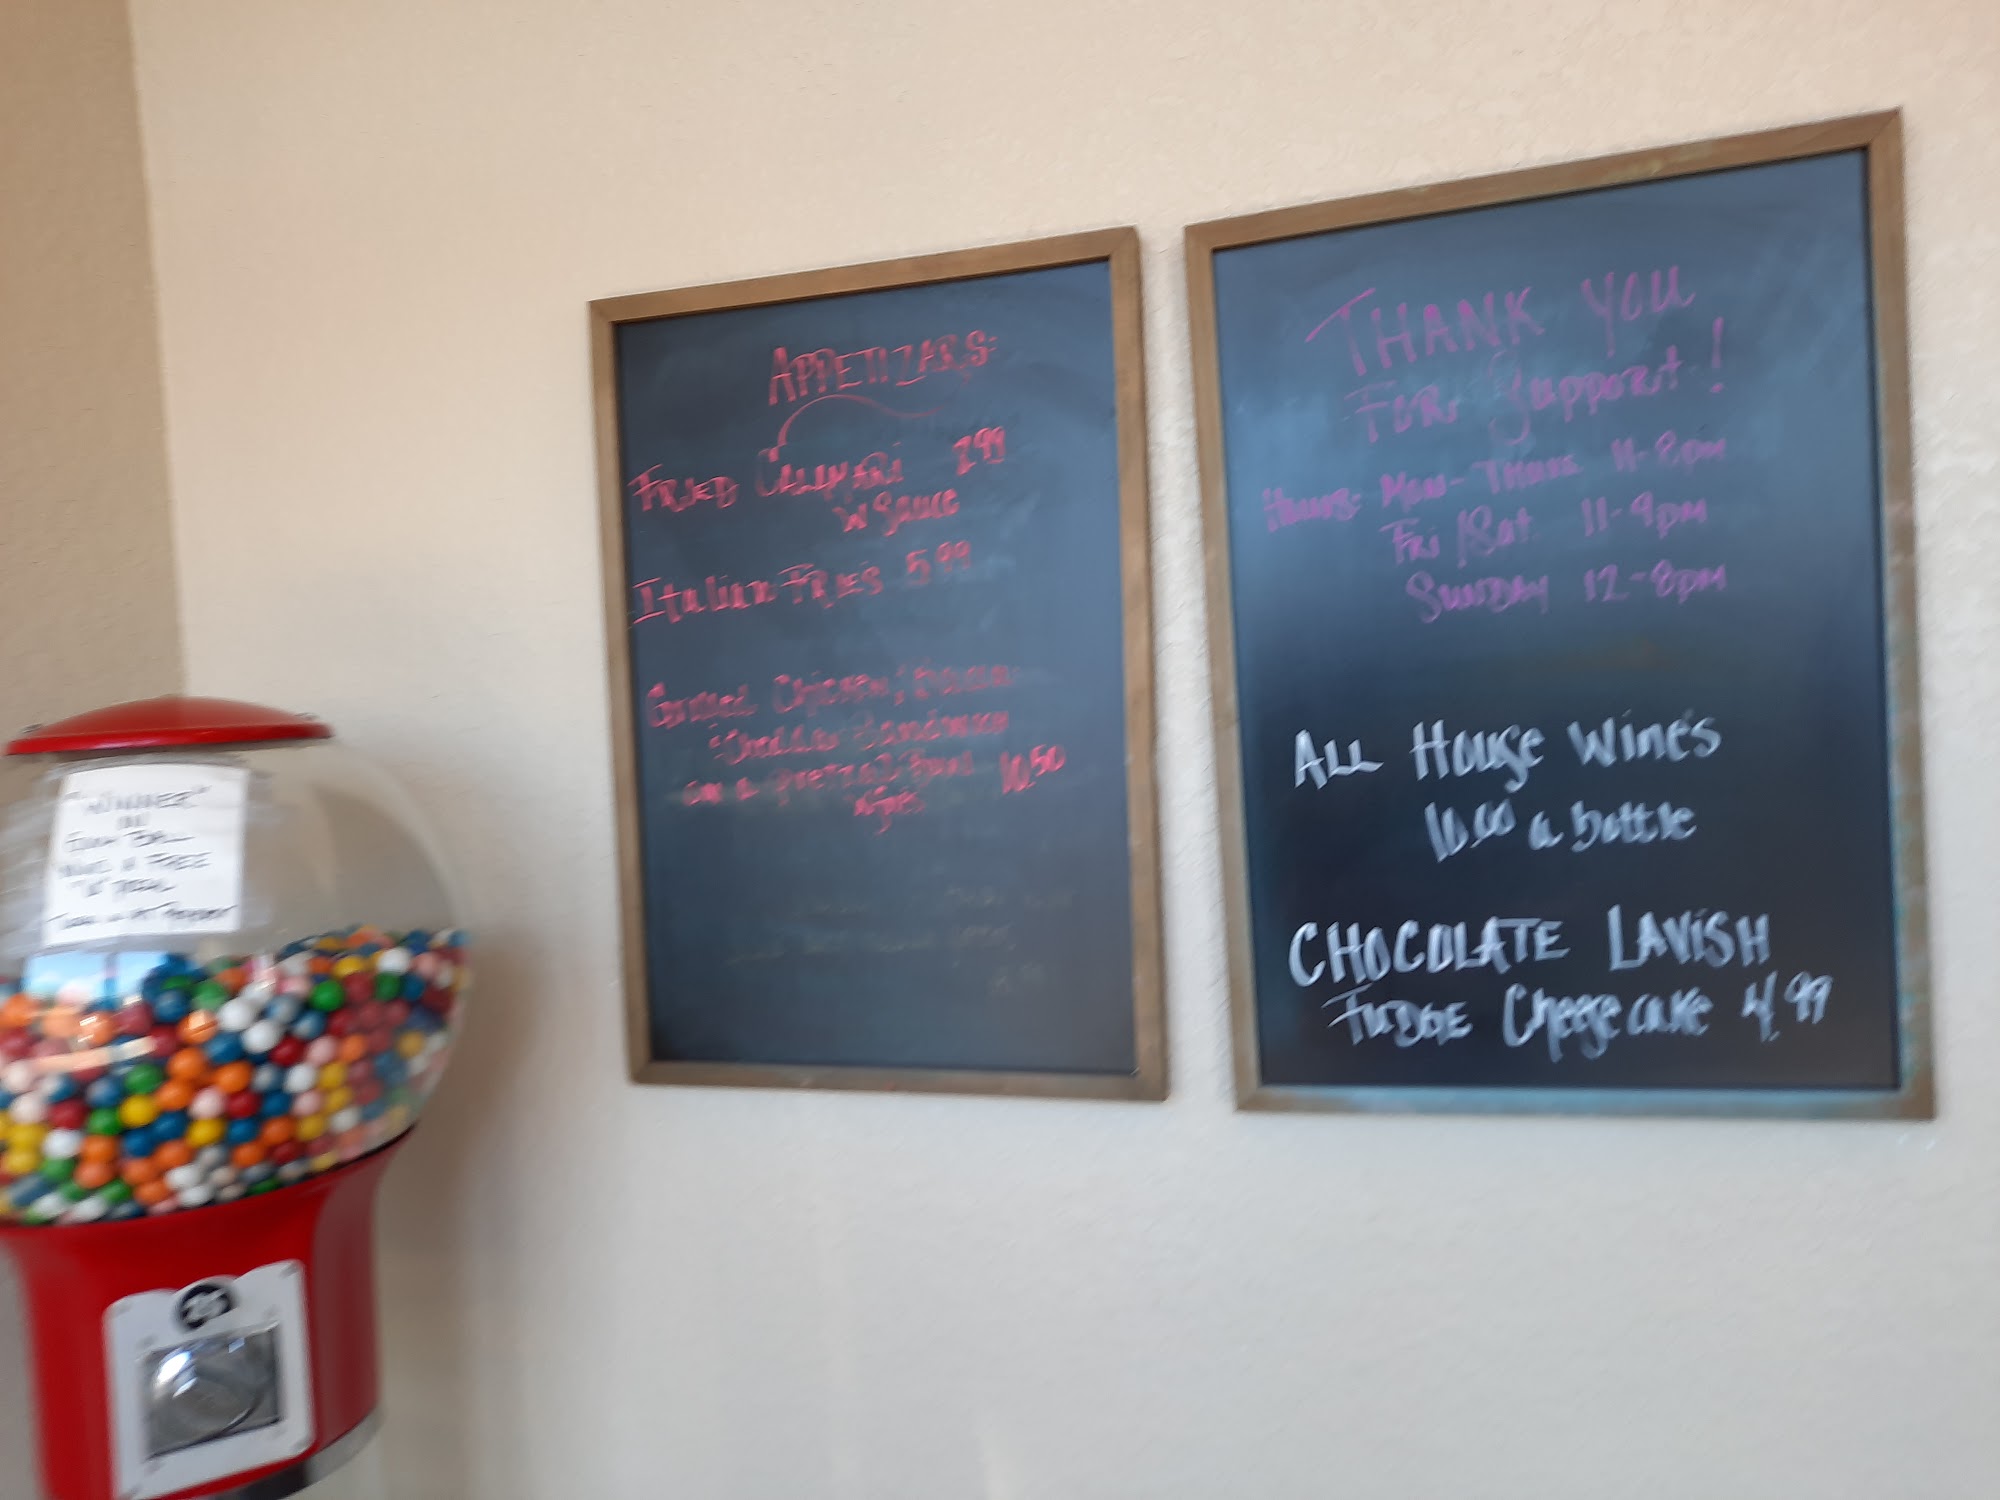 APPETIZARS:
FRIED CALAMARI 7.99
W SAUCE
Italian FRIES 5.99
Grilled Chicken, Bacon
Cheddar Sandwich
on a pretzel Bun 10.50
W fries
THANK YOU
FOR Support!
HOURS: MON-THURS 11-8pm
FRI/Sat. 11-9pm
SUNDAY 12-8pm
ALL HOUSE WINE'S
10.00 a bottle
CHOCOLATE LAVISH
FUDGE CHEESECAKE 4.99
"WINNER"
GUM BALL
FREE
25